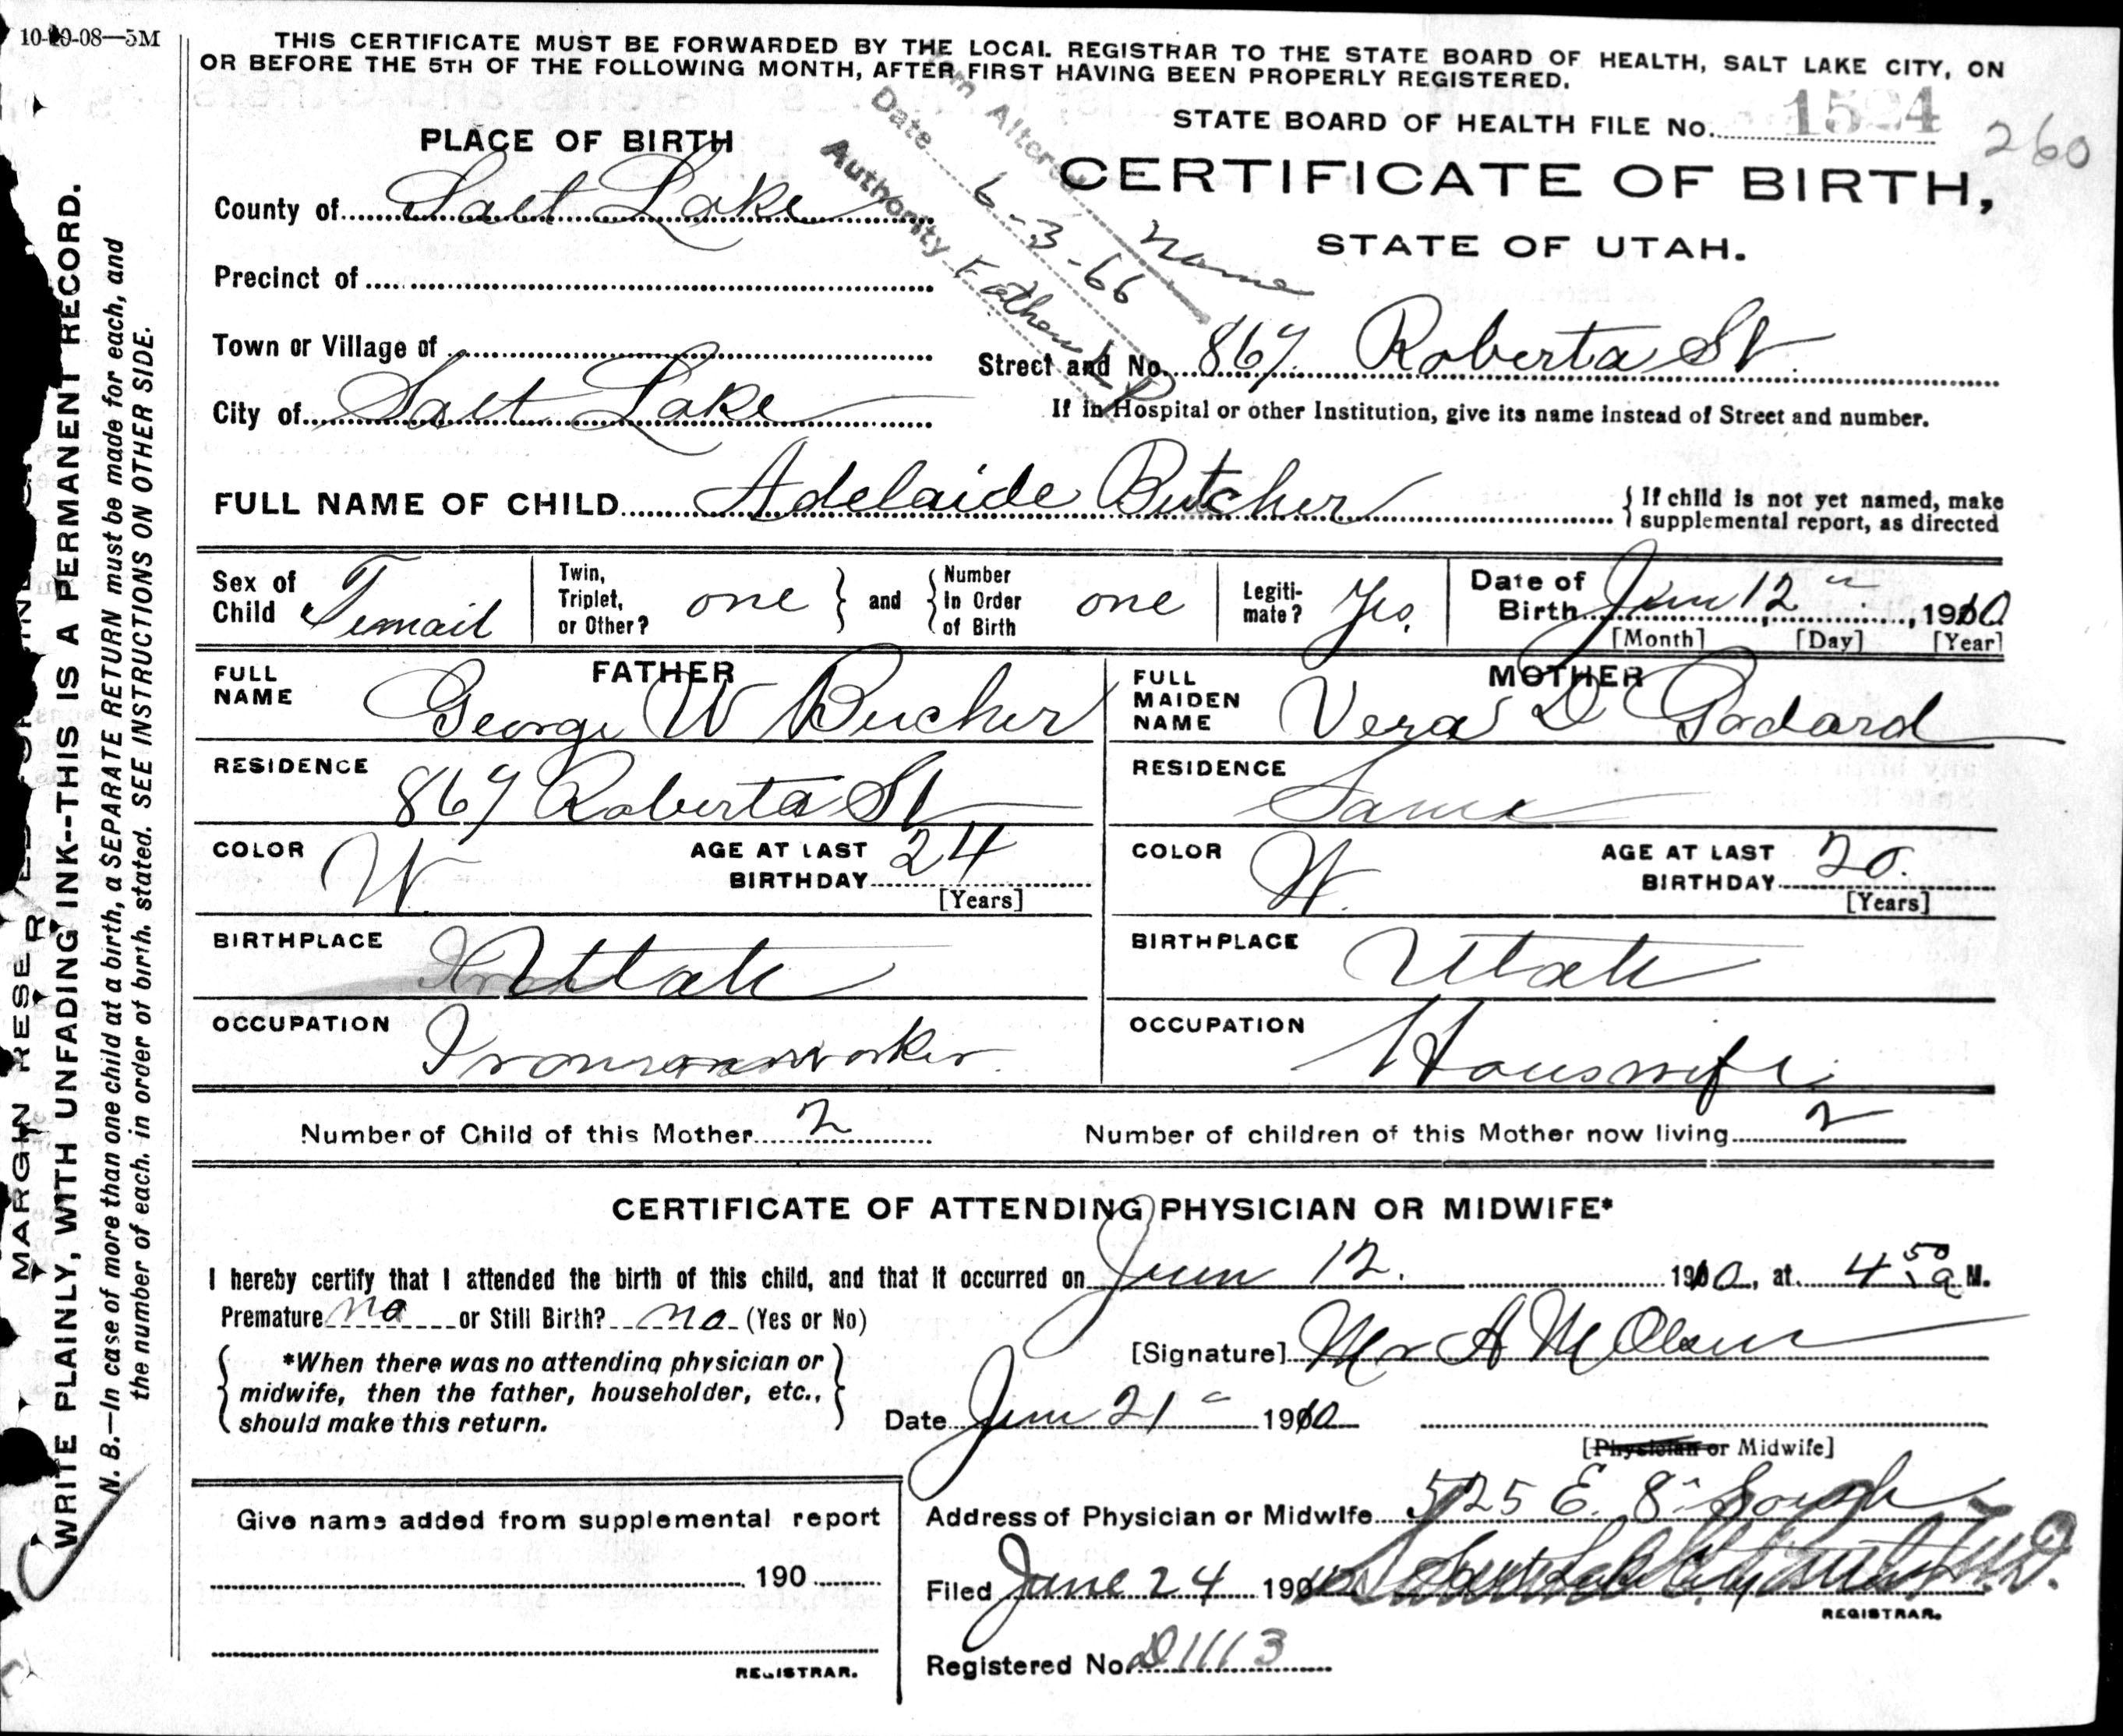 10-19-08—5M
THIS CERTIFICATE MUST BE FORWARDED BY THE LOCAL REGISTRAR TO THE STATE BOARD OF HEALTH, SALT LAKE CITY, ON
OR BEFORE THE 5TH OF THE FOLLOWING MONTH, AFTER FIRST HAVING BEEN PROPERLY REGISTERED.
STATE BOARD OF HEALTH FILE No. 1524
260
PLACE OF BIRTH
CERTIFICATE OF BIRTH,
STATE OF UTAH.
Item Altered Name
Date 6-3-66
Authority Father
County of Salt Lake
Precinct of
Town or Village of
Street and No. 867 Roberta St
City of Salt Lake
If in Hospital or other Institution, give its name instead of Street and number.
FULL NAME OF CHILD Adelaide Butcher
{ If child is not yet named, make
supplemental report, as directed
Sex of Child Femail
Twin, Triplet, or Other? one } and { Number In Order of Birth one
Legitimate? Yes.
Date of Birth June 12", 1910
[Month] [Day] [Year]
FATHER
FULL NAME George W Bucher
MOTHER
FULL MAIDEN NAME Vera D Godard
RESIDENCE 867 Roberta St
RESIDENCE Same
COLOR W.
AGE AT LAST BIRTHDAY 24
[Years]
COLOR W.
AGE AT LAST BIRTHDAY 20.
[Years]
BIRTHPLACE Uttah
BIRTHPLACE Utah
OCCUPATION worker
OCCUPATION Houswife
Number of Child of this Mother 2
Number of children of this Mother now living 2
CERTIFICATE OF ATTENDING PHYSICIAN OR MIDWIFE*
I hereby certify that I attended the birth of this child, and that it occurred on June 12. 1910, at 4 50 a M.
Premature no or Still Birth? no (Yes or No)
*When there was no attending physician or
midwife, then the father, householder, etc.,
should make this return.
[Signature] A M Olsen
Date June 21 1910
[Physician or Midwife]
Address of Physician or Midwife 525 E. 8" South
Give name added from supplemental report
190
REGISTRAR.
Filed June 24 1910 M.D.
REGISTRAR.
Registered No. D1113
MARGIN RESERVED FOR BINDING
WRITE PLAINLY, WITH UNFADING INK--THIS IS A PERMANENT RECORD.
N. B.—In case of more than one child at a birth, a SEPARATE RETURN must be made for each, and
the number of each, in order of birth, stated. SEE INSTRUCTIONS ON OTHER SIDE.